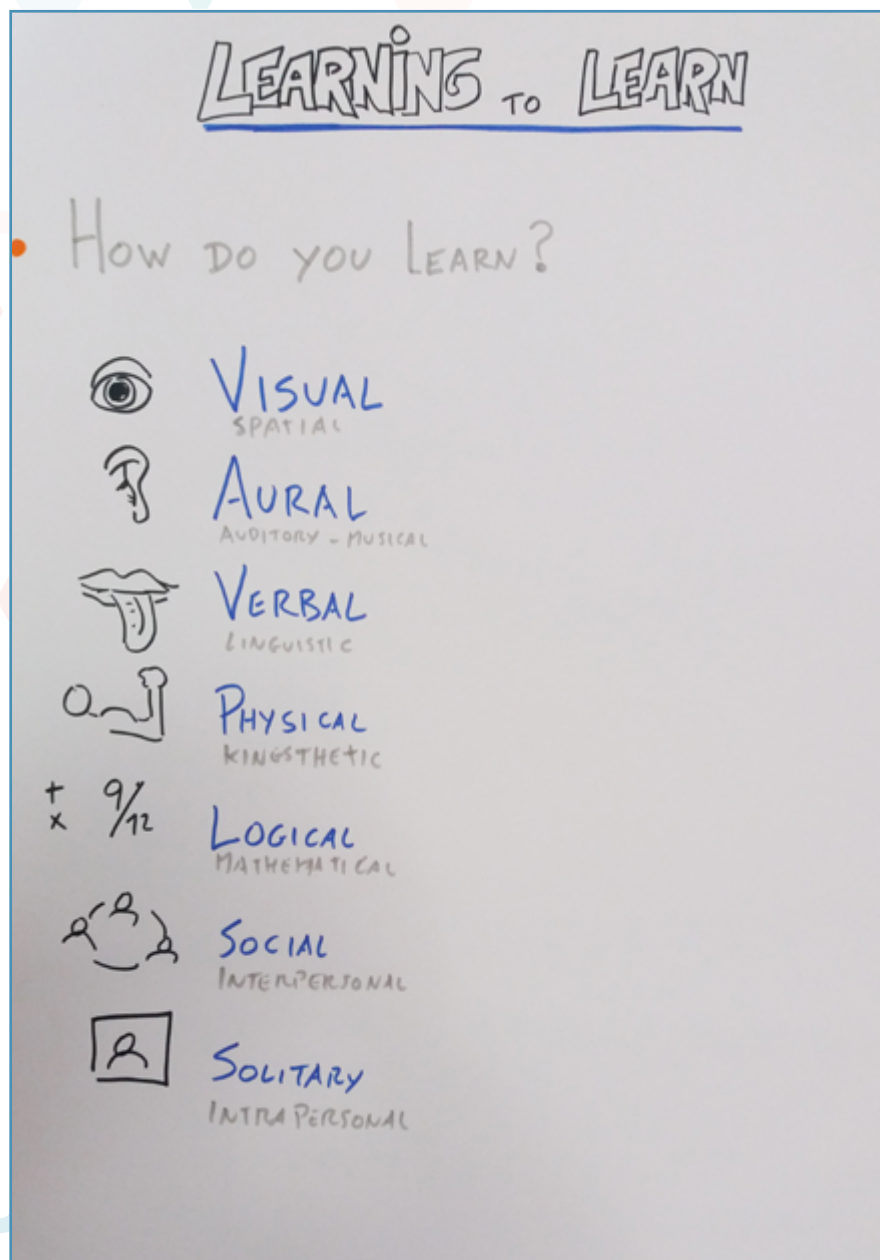 LEARNING TO LEARN
HOW DO YOU LEARN?
VISUAL
SPATIAL
AURAL
AUDITORY - MUSICAL
VERBAL
LINGUISTIC
PHYSICAL
KINGSTHETIC
+
x 9/12
LOGICAL
MATHEMATICAL
SOCIAL
INTERPERSONAL
SOLITARY
INTRAPERSONAL